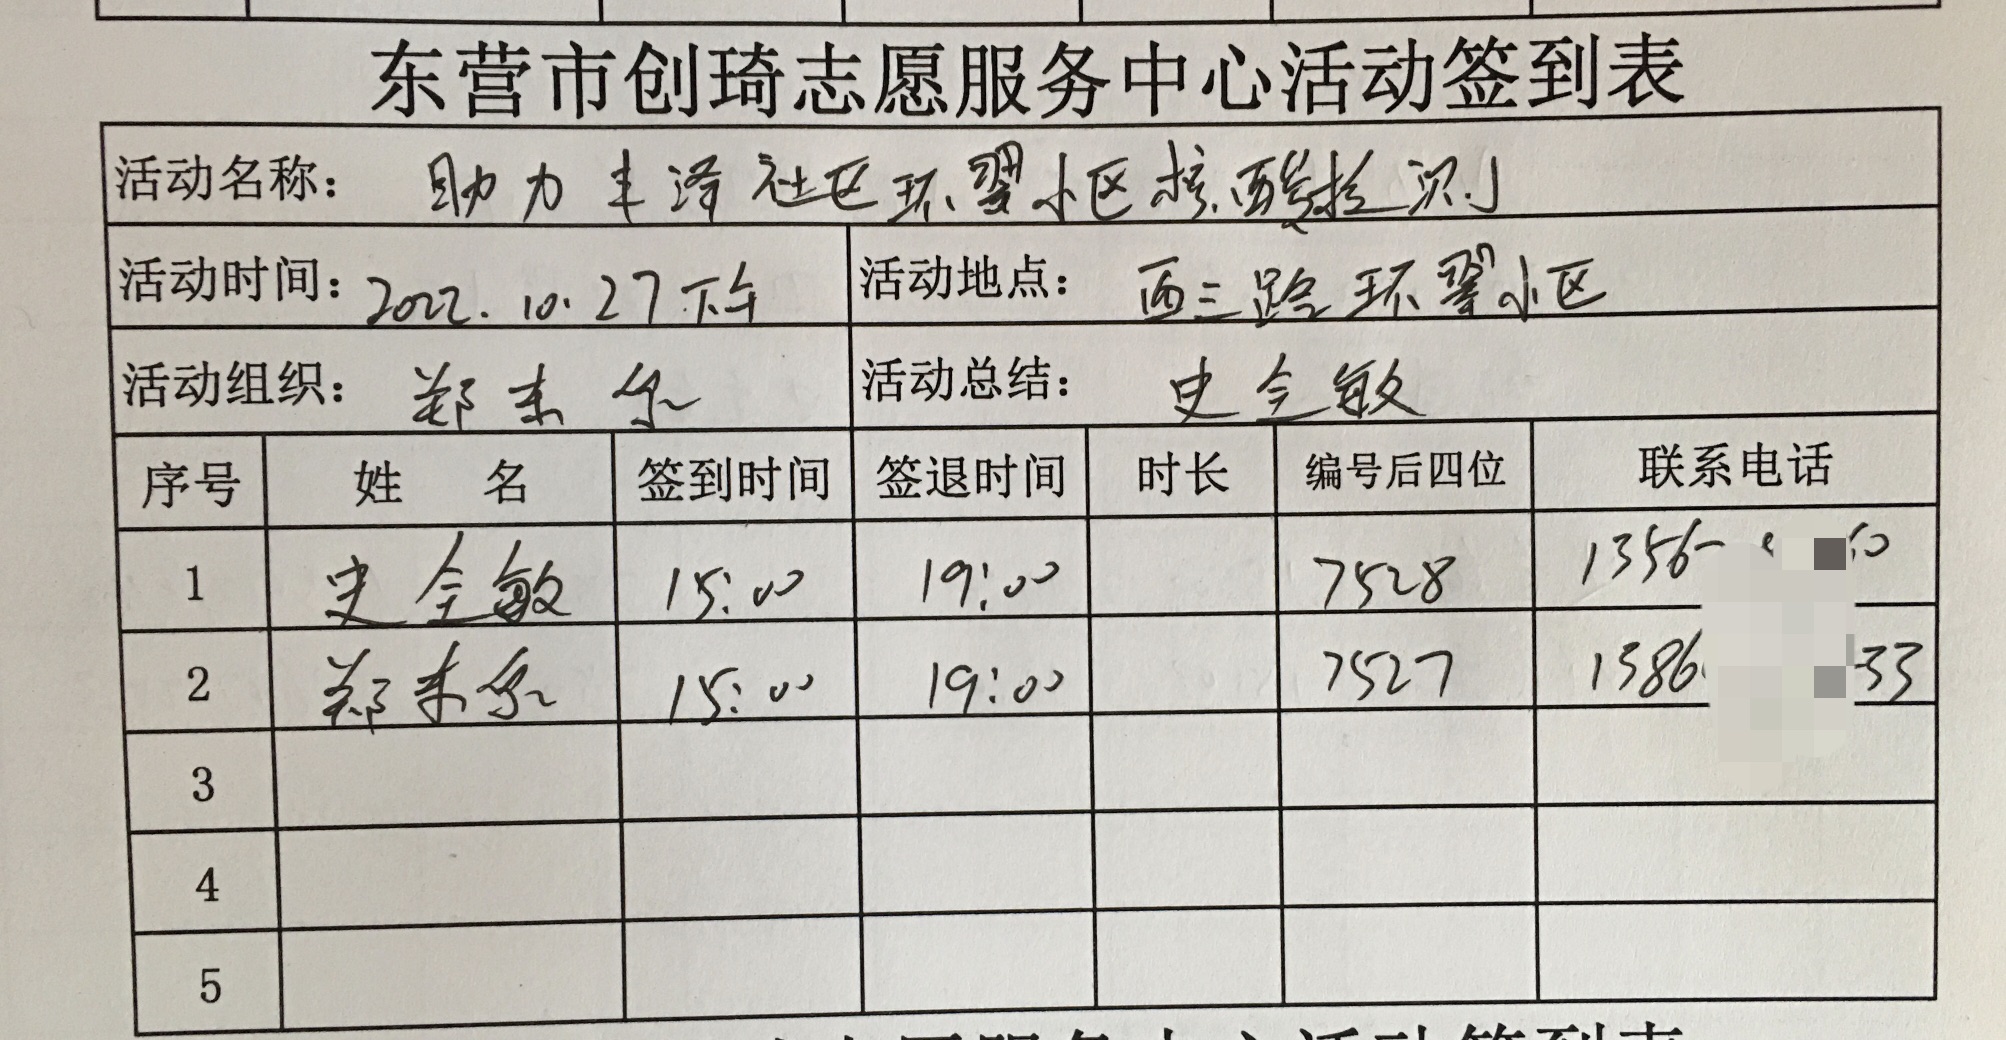 东营市创琦志愿服务中心活动签到表
活动名称： 助力丰泽社区环翠小区核酸检测
活动时间： 2022.10.27下午 活动地点： 西三路环翠小区
活动组织： 郑来 活动总结： 史全敏
序号 姓 名 签到时间 签退时间 时长 编号后四位 联系电话
1 史全敏 15:00 19:00 7528 1356
2 郑来 15:00 19:00 7527 1386 33
3
4
5
志愿服务中心活动签到表